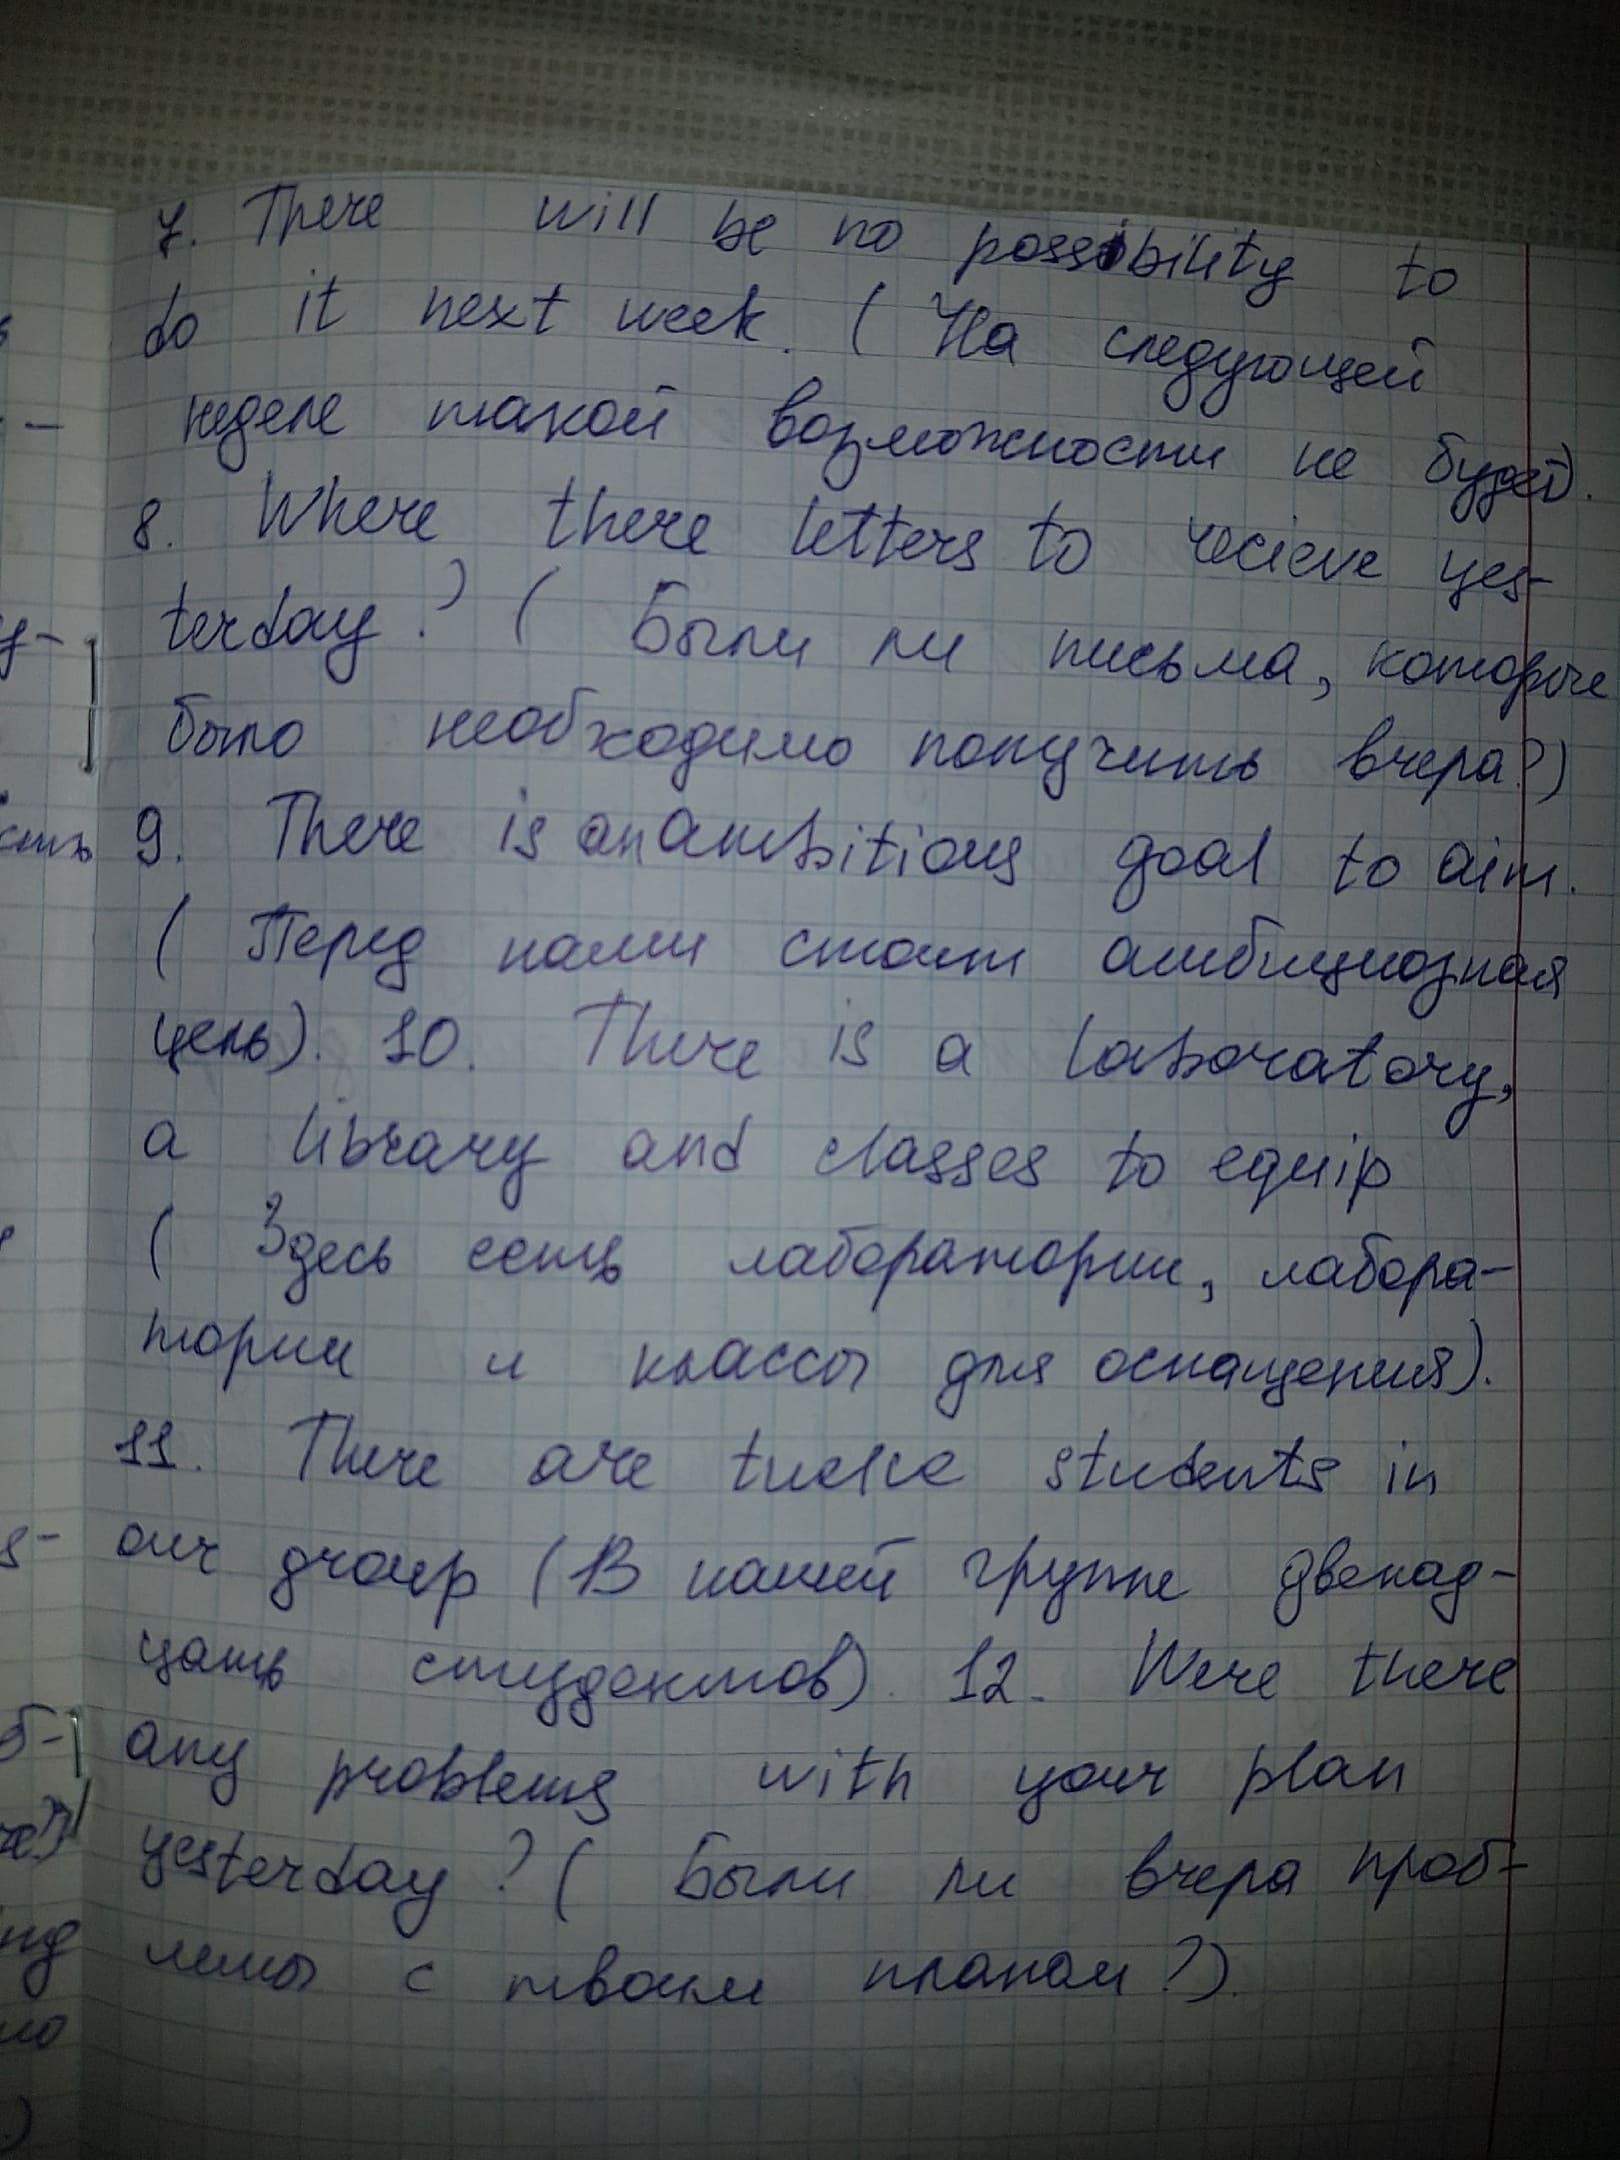 7. There will be no possibility to
do it next week. ( На следующей
неделе такой возможности не будет).
8. Where there letters to recieve yes-
terday? ( Были ли письма, которые
было необходимо получить вчера?)
9. There is an ambitious goal to aim.
( Перед нами стоит амбициозная
цель). 10. There is a laboratory,
a library and classes to equip
( Здесь есть лаборатории, лабора-
тории и классы для оснащения).
11. There are twelve students in
our group ( В нашей группе двенад-
цать студентов). 12. Were there
any problems with your plan
yesterday? ( Были ли вчера проб-
лемы с твоим планом?).